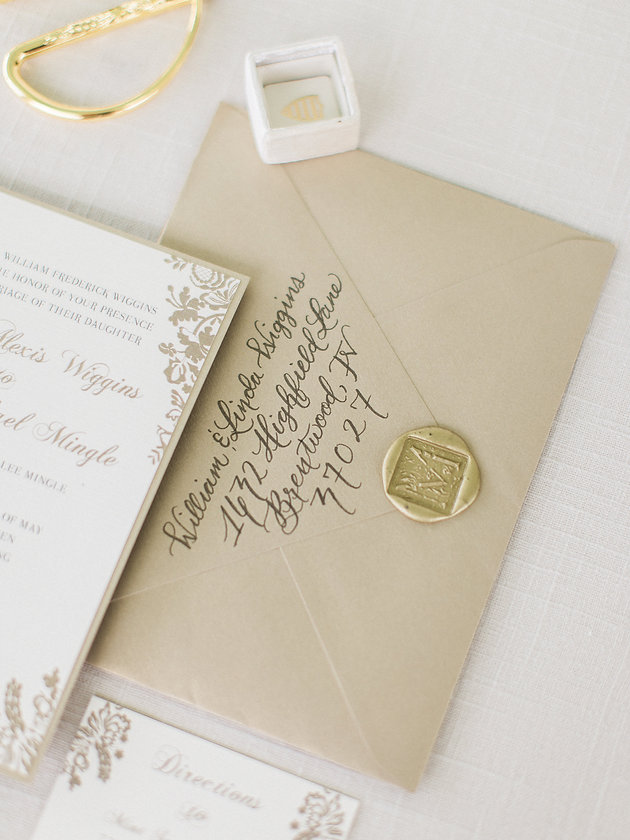 WILLIAM FREDERICK WIGGINS
HONOR OF YOUR PRESENCE
OF THEIR DAUGHTER
Alexis Wiggins
to
Mingle
LEE MINGLE
OF MAY
William & Linda Wiggins
1632 Highfield Lane
Brentwood, TN
37027
M
Directions
to